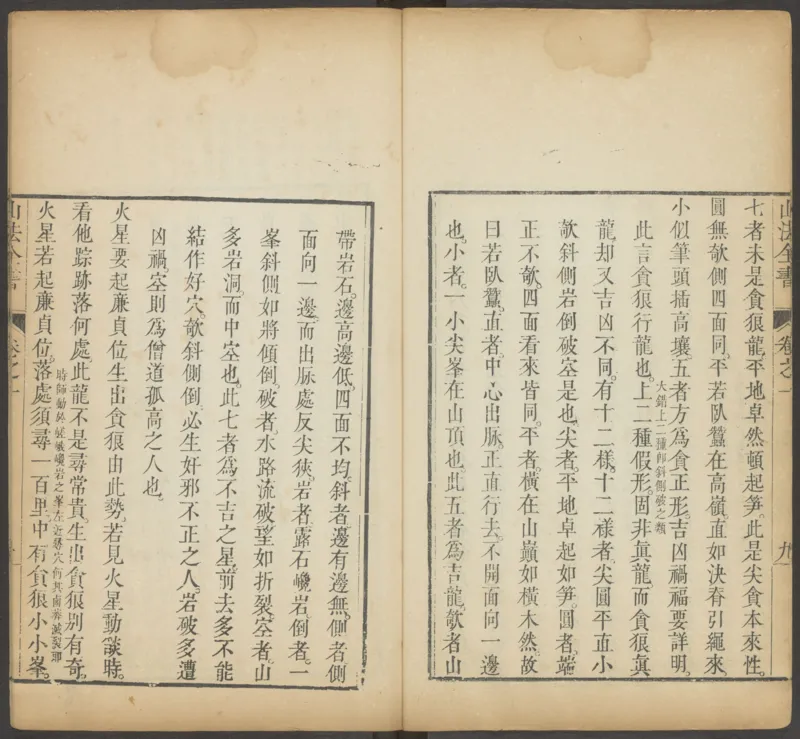 七者未是貪狼龍。平地卓然頓起笋。此是尖貪本來性。
圓無欹側四面同。平若臥蠶在高嶺。直如決脊引繩來。
小似筆頭插高壤。五者方爲貪正形。吉凶禍福要詳明。
此言貪狼行龍也。上二種假形。固非眞龍。而貪狼眞
大錯上二種卽斜側破之類
龍却又吉凶不同。有十二樣。十二樣者。尖圓平直小
欹斜側岩倒破空是也。尖者。平地卓起如笋。圓者。端
正不欹。四面看來皆同。平者。橫在山巔如橫木然。故
曰若臥蠶。直者。中心出脉。正直行去。不開面向一邊
也。小者。一小尖峯在山頂也。此五者爲吉龍。欹者山
山法全書
卷之一
九
帶岩石。邊高邊低。四面不均。斜者邊有邊無。側者側
面向一邊。而出脉處反尖狹。岩者。露石巉岩。倒者。一
峯斜側如將傾倒。破者。水路流破。望如折裂。空者。山
多岩洞。而中空也。此七者爲不吉之星。前去多不能
結作好穴。欹斜側倒。必生奸邪不正之人。岩破多遭
凶禍。空則爲僧道孤高之人也。
火星要起廉貞位生出貪狼由此勢。若見火星動燄時。
看他踪跡落何處。此龍不是尋常貴。生出貪狼別有奇。
火星若起廉貞位。落處須尋一百里。中有貪狼小小峯。
山法全書
卷之一